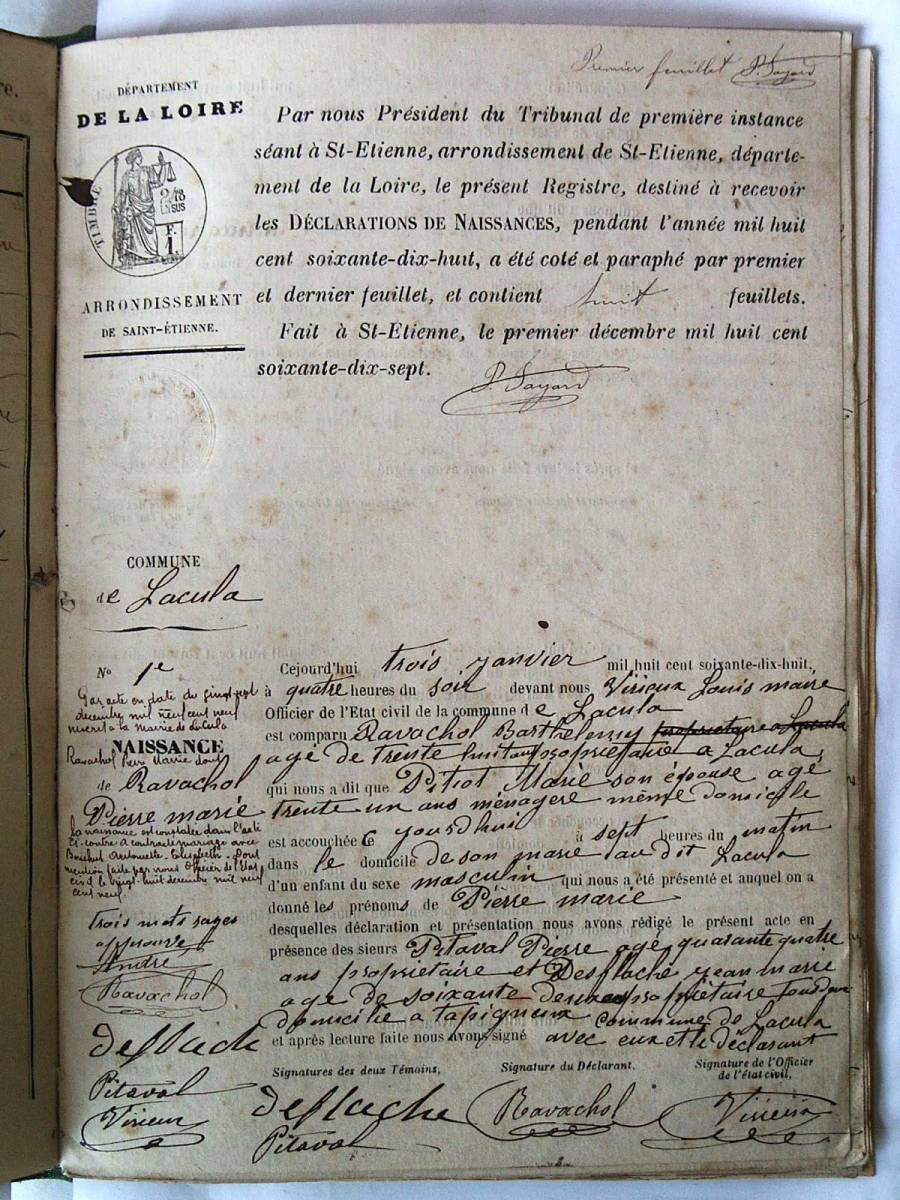 Premier feuillet P. Fayard
DÉPARTEMENT
DE LA LOIRE
TIMBRE
2/10
EN SUS
F.
1.
ARRONDISSEMENT
DE SAINT-ÉTIENNE.
Par nous Président du Tribunal de première instance
séant à St-Etienne, arrondissement de St-Etienne, départe-
ment de la Loire, le présent Registre, destiné à recevoir
les DÉCLARATIONS DE NAISSANCES, pendant l'année mil huit
cent soixante-dix-huit, a été coté et paraphé par premier
et dernier feuillet, et contient huit feuillets.
Fait à St-Etienne, le premier décembre mil huit cent
soixante-dix-sept.
P. Fayard
COMMUNE
de Lacula
No 1e
Par acte en date du vingt sept
décembre mil neuf cent neuf
inscrit à la Mairie de LaCula
NAISSANCE
Ravachol Pierre Marie dont
de Ravachol
Pierre marie
la naissance est constatée dans l'acte
ci-contre a contracté mariage avec
Antoinette Elisabeth. Dont
mention faite par nous Officier de l'Etat
civil le vingt-huit décembre mil neuf
cent neuf.
trois mots rayés
approuvé
André
Ravachol
deflache
Pitaval
Virieux
Cejourd'hui trois janvier mil huit cent soixante-dix-huit,
à quatre heures du soir devant nous Virieux Louis maire
Officier de l'Etat civil de la commune de Lacula
est comparu Ravachol Barthelemy proprietaire a Lacula
agé de trente huit ans propriétaire a Lacula
qui nous a dit que Pitiot Marie son épouse agé
trente un ans ménagère même domicile
est accouchée ce jourdhui à sept heures du matin
dans le domicile de son marie au dit Lacula
d'un enfant du sexe masculin qui nous a été présenté et auquel on a
donné les prénoms de Pierre marie
desquelles déclaration et présentation nous avons rédigé le présent acte en
présence des sieurs Pitaval Pierre agé quarante quatre
ans propriétaire et Desflache jean marie
age de soixante deux propriétaire tous deux
domicilié a tapigneux commune de Lacula
et après lecture faite nous avons signé avec eux et le déclarant
Signatures des deux Témoins, Signature du Déclarant. Signature de l'Officier
de l'état civil,
deflache Ravachol Virieux
Pitaval